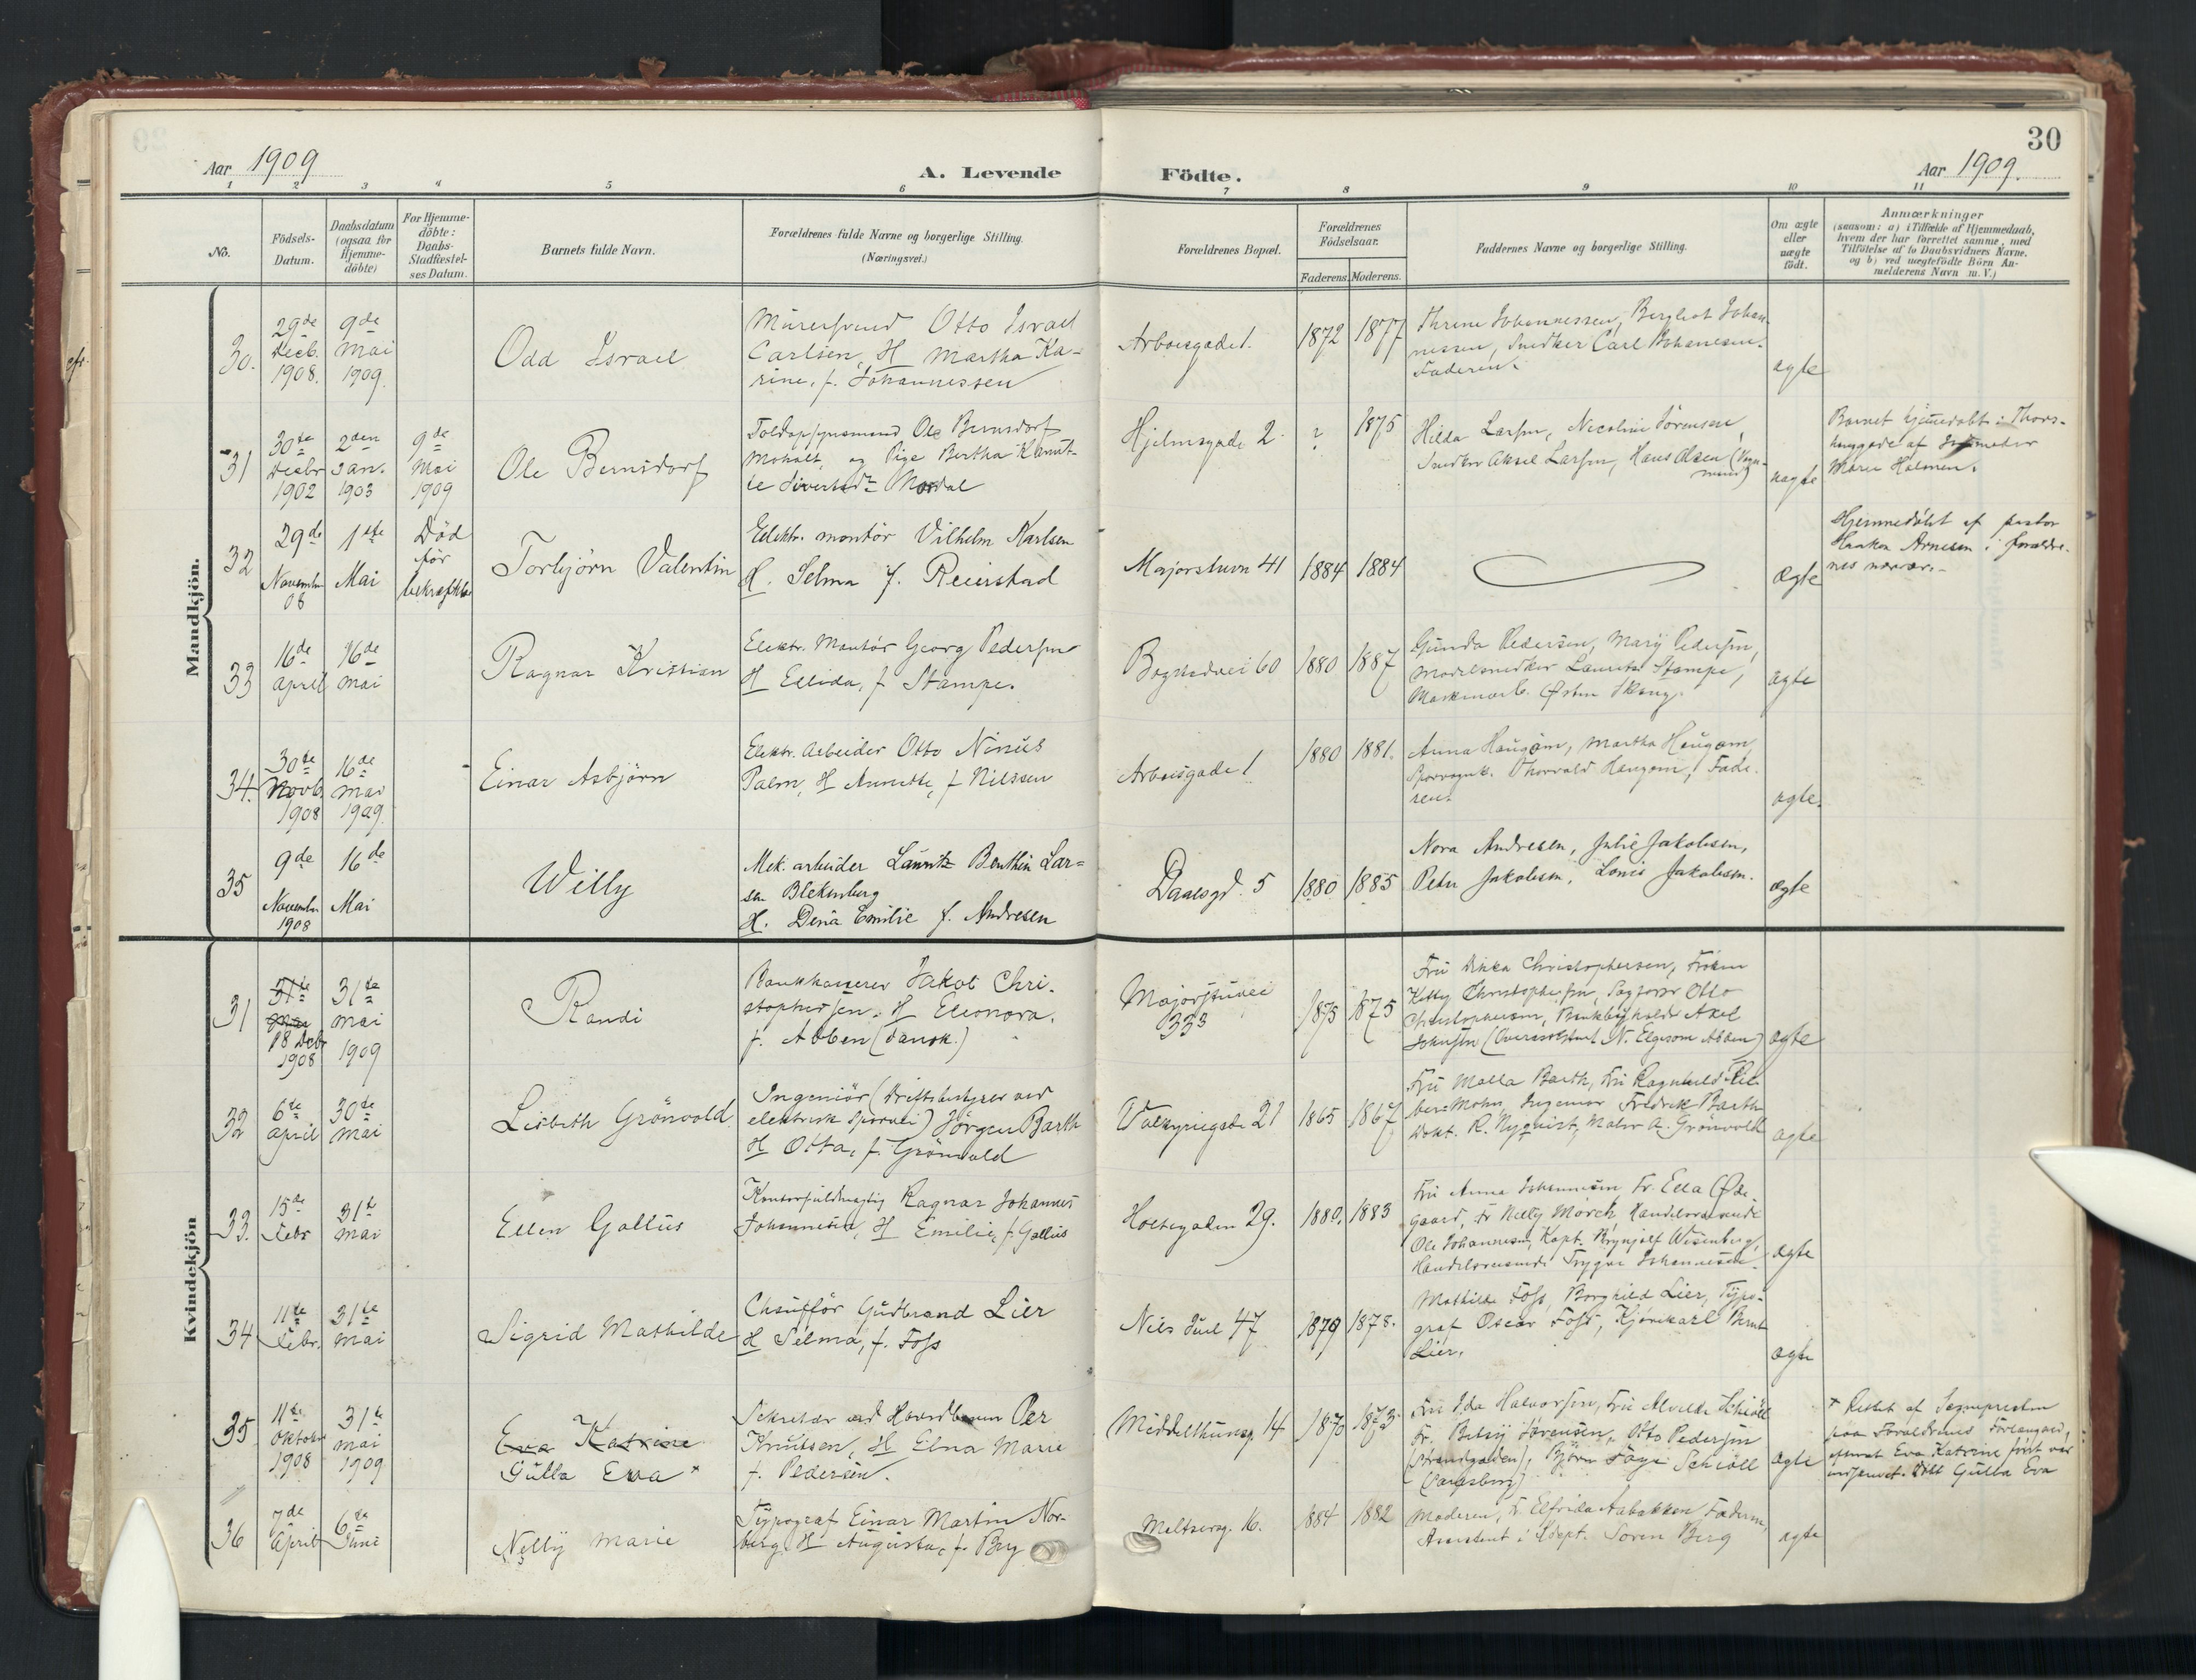 30
Aar 1909
A. Levende Födte.
Aar 1909.
1 2 3 4 5 6 7 8 9 10 11
No.
Födsels-
Datum.
Daabsdatum
(ogsaa for
Hjemme-
döbte)
For Hjemme-
döbte:
Daabs-
Stadfæstel-
ses Datum.
Barnets fulde Navn.
Forældrenes fulde Navne og borgerlige Stilling.
(Næringsvei.)
Forældrenes Bopæl.
Forældrenes
Födselsaar.
Faderens. Moderens.
Faddernes Navne og borgerlige Stilling.
Om ægte
eller
uægte
födt.
Anmærkninger
(saasom: a) i Tilfælde af Hjemmedaab,
hvem der har forrettet samme, med
Tilföielse af to Daabsvidners Navne.
og b) ved uægtefödte Börn An-
melderens Navn m. V.)
Mandkjön.
30.
29de
Decb.
1908.
9de
Mai
1909.
Odd Israel
Murersvend Otto Israel
Carlsen, H Martha Ka-
rine, f. Johannessen
Arboesgade 1.
1872 1877
Thrine Johannessen, Bergliot Johan-
nessen, Snedker Carl Johanesen.
Faderen.
ægte
31
30te
Decbr
1902
2den
Jan.
1903
9de
Mai
1909
Ole Bernsdorf
Toldopsynsmand Ole Bernsdorf
Moholt, og Pige Bertha Knudt-
ie Sivertsdr Mordal
Hjelmsgade 2.
? 1875
Hilda Larsen, Nicoline Sörensen,
Snedker Aksel Larsen, Hans Olsen (Vogn-
mand)
uægte
Barnet hjemmedöbt i Thors-
hauggade af Jordmoder
Marie Holmen.
32
29de
Novembr
08
1ste
Mai
Död
för
bekræftelse
Torbjörn Valentin
Elektr. montör Vilhelm Karlsen
H. Selma f. Reierstad
Majorstuvn 41
1884 1884
Ægte
Hjemmedöbt af pastor
Haakon Arnesen i forældre-
nes nærvær.-
33
16de
April
16de
Mai
Ragnar Kristian
Elektr. Montör Georg Pedersen
H Ellida, f. Stampe.
Bogstadvei 60
1880 1887
Gunda Pedersen, Mary Pedersen,
Modelsnedker Lauritz Stampe,
Maskinarb. Östen Skaug.
ægte
34.
30te
Novb
1908
16de
Mai
1909.
Einar Asbjörn
Elektr. Arbeider Otto Ninus
Palm, H Annethe, f Nilssen
Arboesgade 1
1880 1881.
Anna Haugom, Martha Haugom,
Sporvognk. Thorvald Haugom, Fade-
ren.
ægte.
35
9de
Novembr
1908
16de
Mai
Willy
Mek. arbeider Lauritz Benthin Lar-
sen Blekenberg
H. Dena Emilie f. Andresen
Daasgd. 5
1880 1885
Nora Andresen, Julie Jakobsen,
Peter Jakobsen, Louis Jakobsen.
ægte
Kvindekjön
31
31te
Mai
18 Decbr
1908
31te
Mai
1909
Randi
Bankkasserer Jakob Chri-
stophersen, H Eleonora,
f. Abben (dansk.)
Majorstuvei
33³
1875 1875
Fru Dikka Christophersen, Fröken
Kitty Christophersen, Sagförer Otto
Christophersen, Bankbogholder Axel
Johnsen (Overretssagf. N. Elgesom Abben)
ægte
32
6te
April
30te
Mai
Lisbeth Grönvold
Ingeniör (Driftsbestyrer ved
elektrisk Sporvei) Jörgen Barth
H Otta, f. Grönvold
Valkyriegade 21
1865 1867
Fru Malla Barth, Fru Ragnhild Fle-
Mohn, Ingeniör Fredrik Barth
Dokt. R. Nyquist, Maler A. Grönvold
ægte
33.
15de
Febr
31te
Mai
Ellen Gallus
Kontorfuldmægtig Ragnar Johannes
Johannesen, H Emilie, f. Gallus
Holtegaden 29.
1880. 1883
Fru Anna Johannesen Fr. Ella Öde-
gaard, Fr Nelly Mörch Handelsreisende
Ole Johannesen, Kapt. Brynjolf Wesenberg,
Handelsreisende Trygve Johannesen.
ægte
34
11te
Febr.
31te
Mai
Sigrid Mathilde
Chaufför Gudbrand Lier
H Selma, f. Foss
Niels Juel 47
1879 1878.
Mathilde Foss, Borghild Lier, Typo-
graf Oscar Foss, Kjörekarl Bernt
Lier.
ægte
35
11te
Oktober
1908
31te
Mai
1909
Eva Katrine
Gulla Eva ×
Sekretær ved Hovedbanen Per
Knutsen, H Elna Marie
f. Pedersen.
Middelthunsg. 14
1870 1873.
Fru Ida Halvorsen, Fru Alvilde Schiöll
Fr. Betsy Sörensen, Otto Pedersen
(Strandgaden), Björn Faye Schiöll
(Sarpsborg)
ægte
× Rettet af Sognepresten
paa Forældrenes Forlangend,
efterat Eva Katrine först var
indfört. till Gulla Eva
36
7de
April
6te
Juni
Nelly Marie
Typograf Einar Martin Nor-
berg, H Augusta, f. Berg
Meltzersg. 16.
1884 1882
Moderen, Fr. Elfrida Aabakken Faderen,
Assistent i Soren Berg
ægte